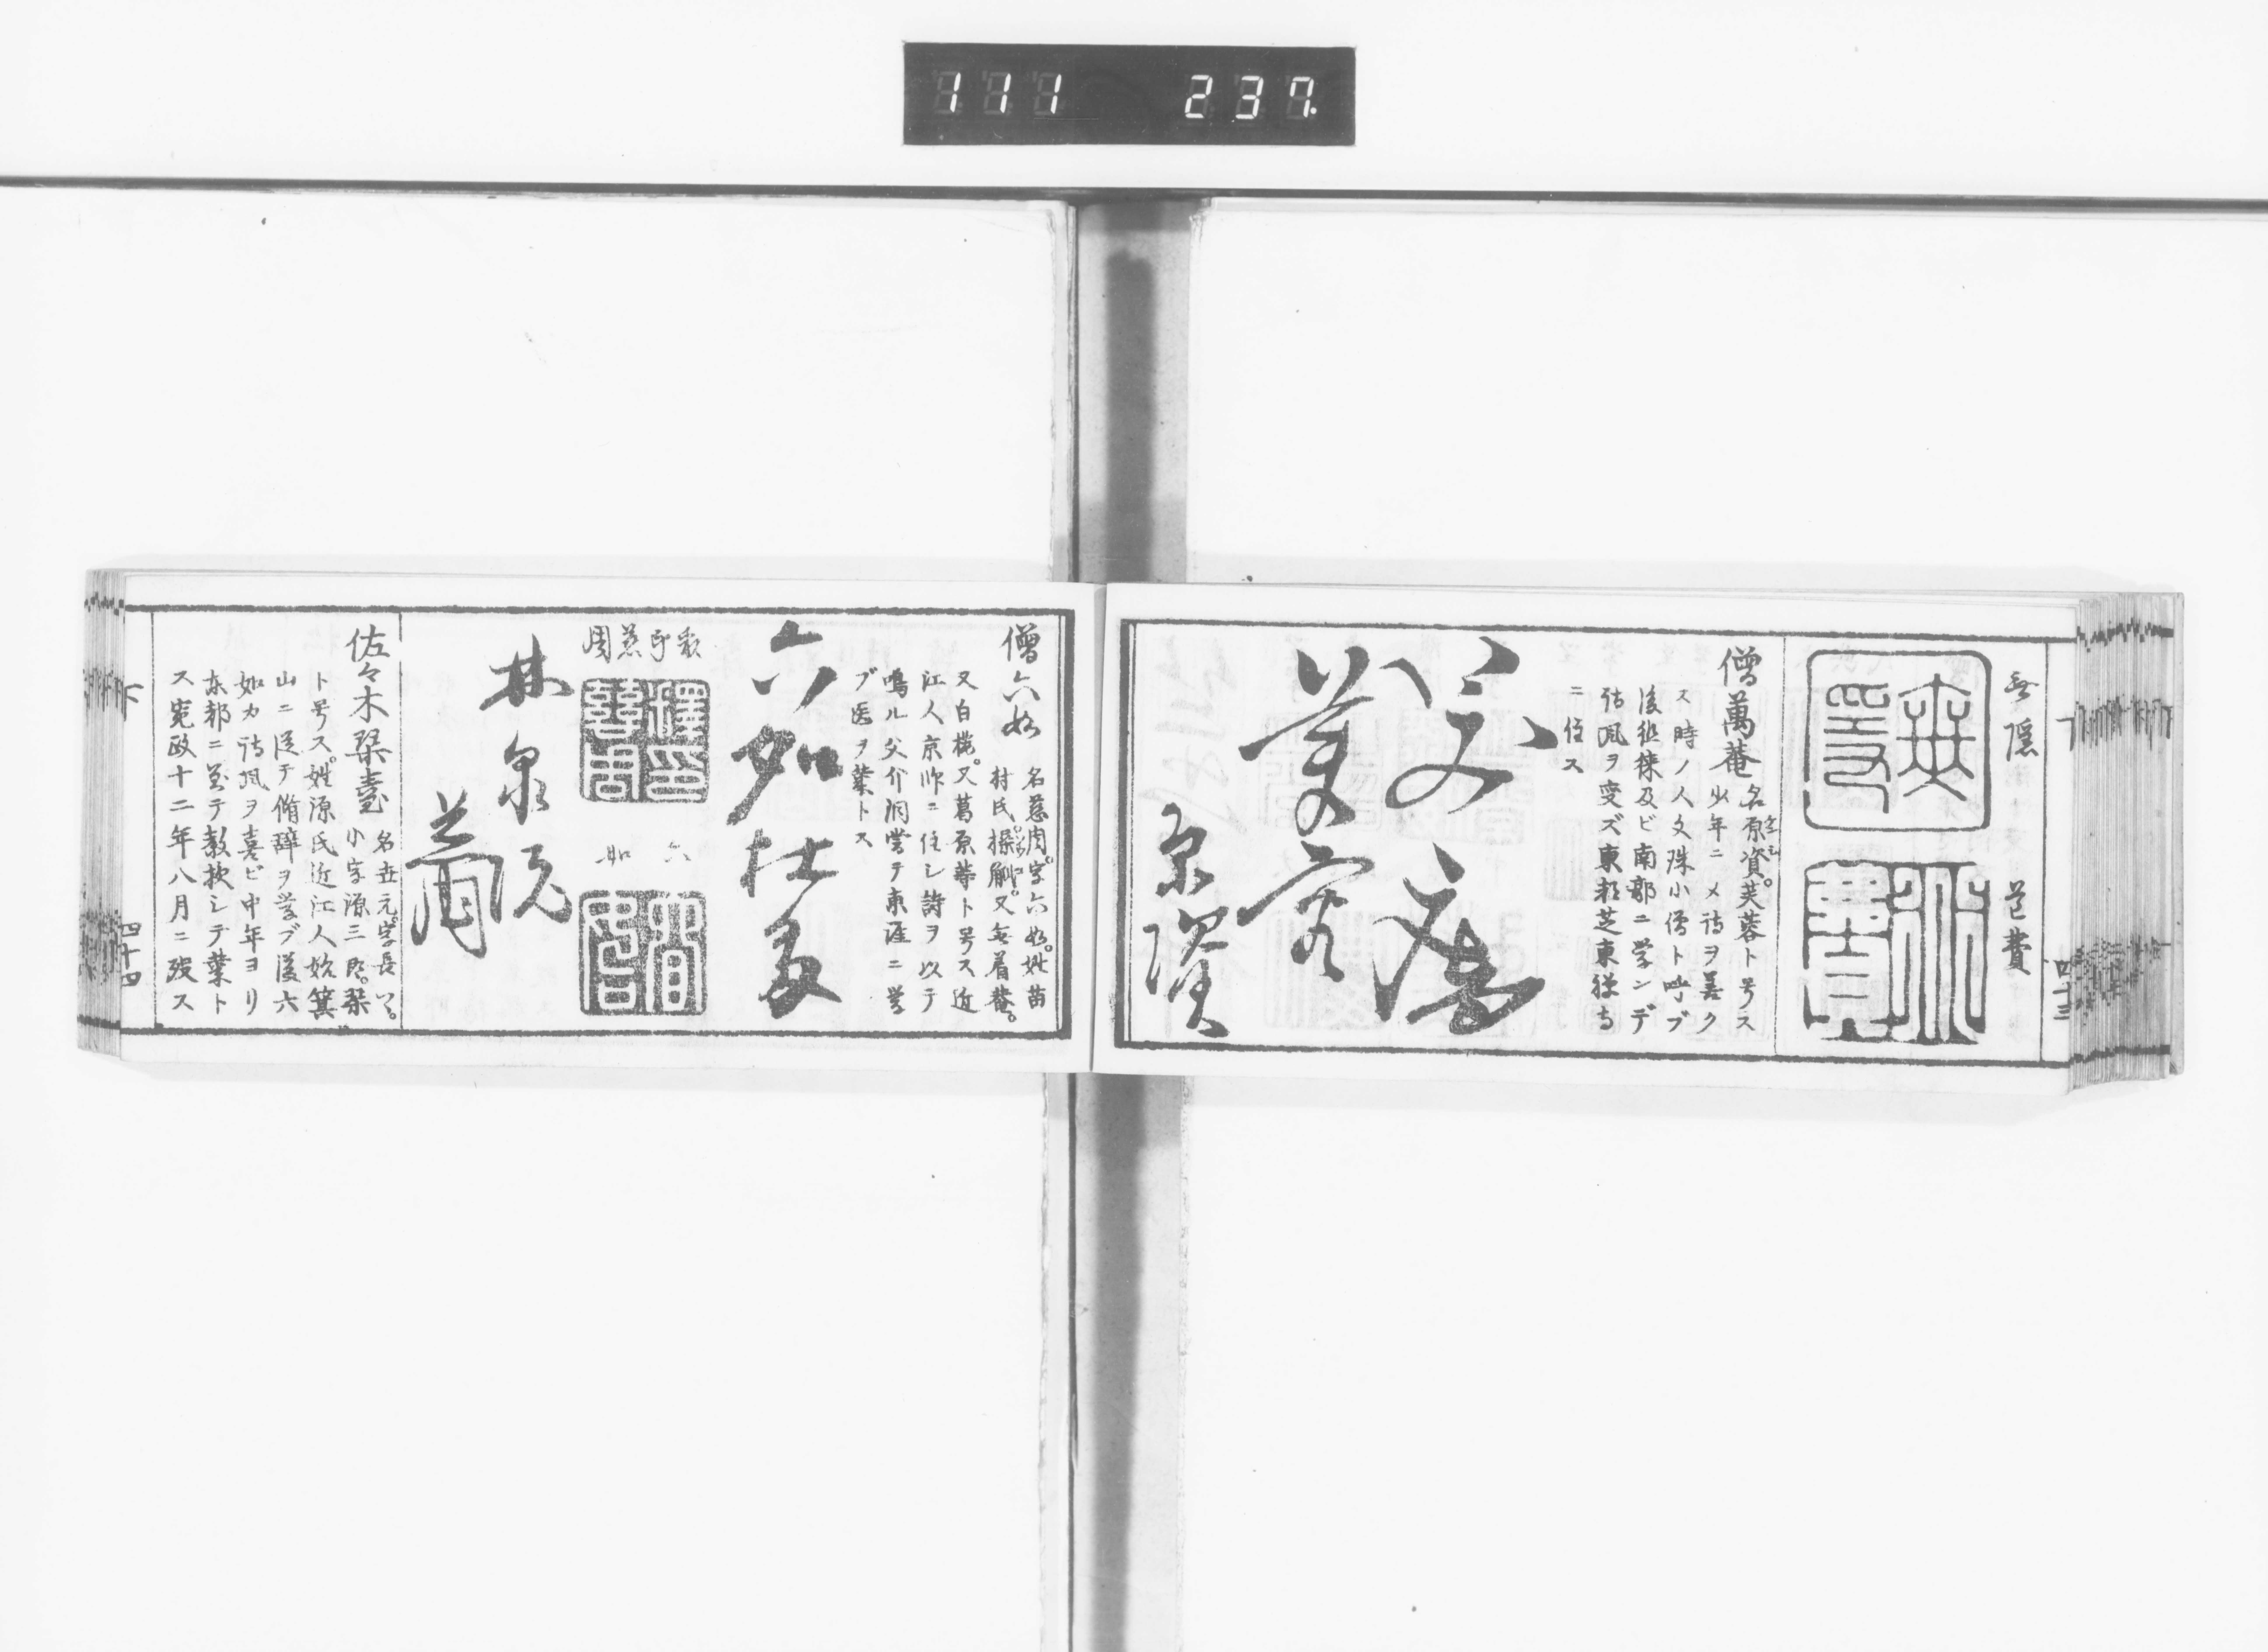 111 237.
無隠 道費
僧萬菴 名原資。芙蓉ト号ス
少年ニメ詩ヲ善ク
ス時ノ人文殊小僧ト呼ブ
後徂徠及ビ南郭ニ学ンデ
詩風ヲ変ズ東都芝東禅寺
ニ住ス
芙蓉
原資
四十三
僧六如 名慈周。字六如。姓苗
村氏操觚。又無着菴。
又白楼。又葛原等ト号ス近
江人京師ニ住シ詩ヲ以テ
鳴ル父介洞嘗テ東涯ニ学
ブ医ヲ業トス
六如杜多
釈印慈周
六如
林泉院
蘭
佐々木琴臺 名世元。字長
小字源三郎。琴
ト号ス。姓源氏近江人始箕
山ニ従テ脩辞ヲ学ブ後六
如カ詩風ヲ喜ビ中年ヨリ
東都ニ至テ教授シテ業ト
ス寛政十二年八月ニ歿ス
下
四十四